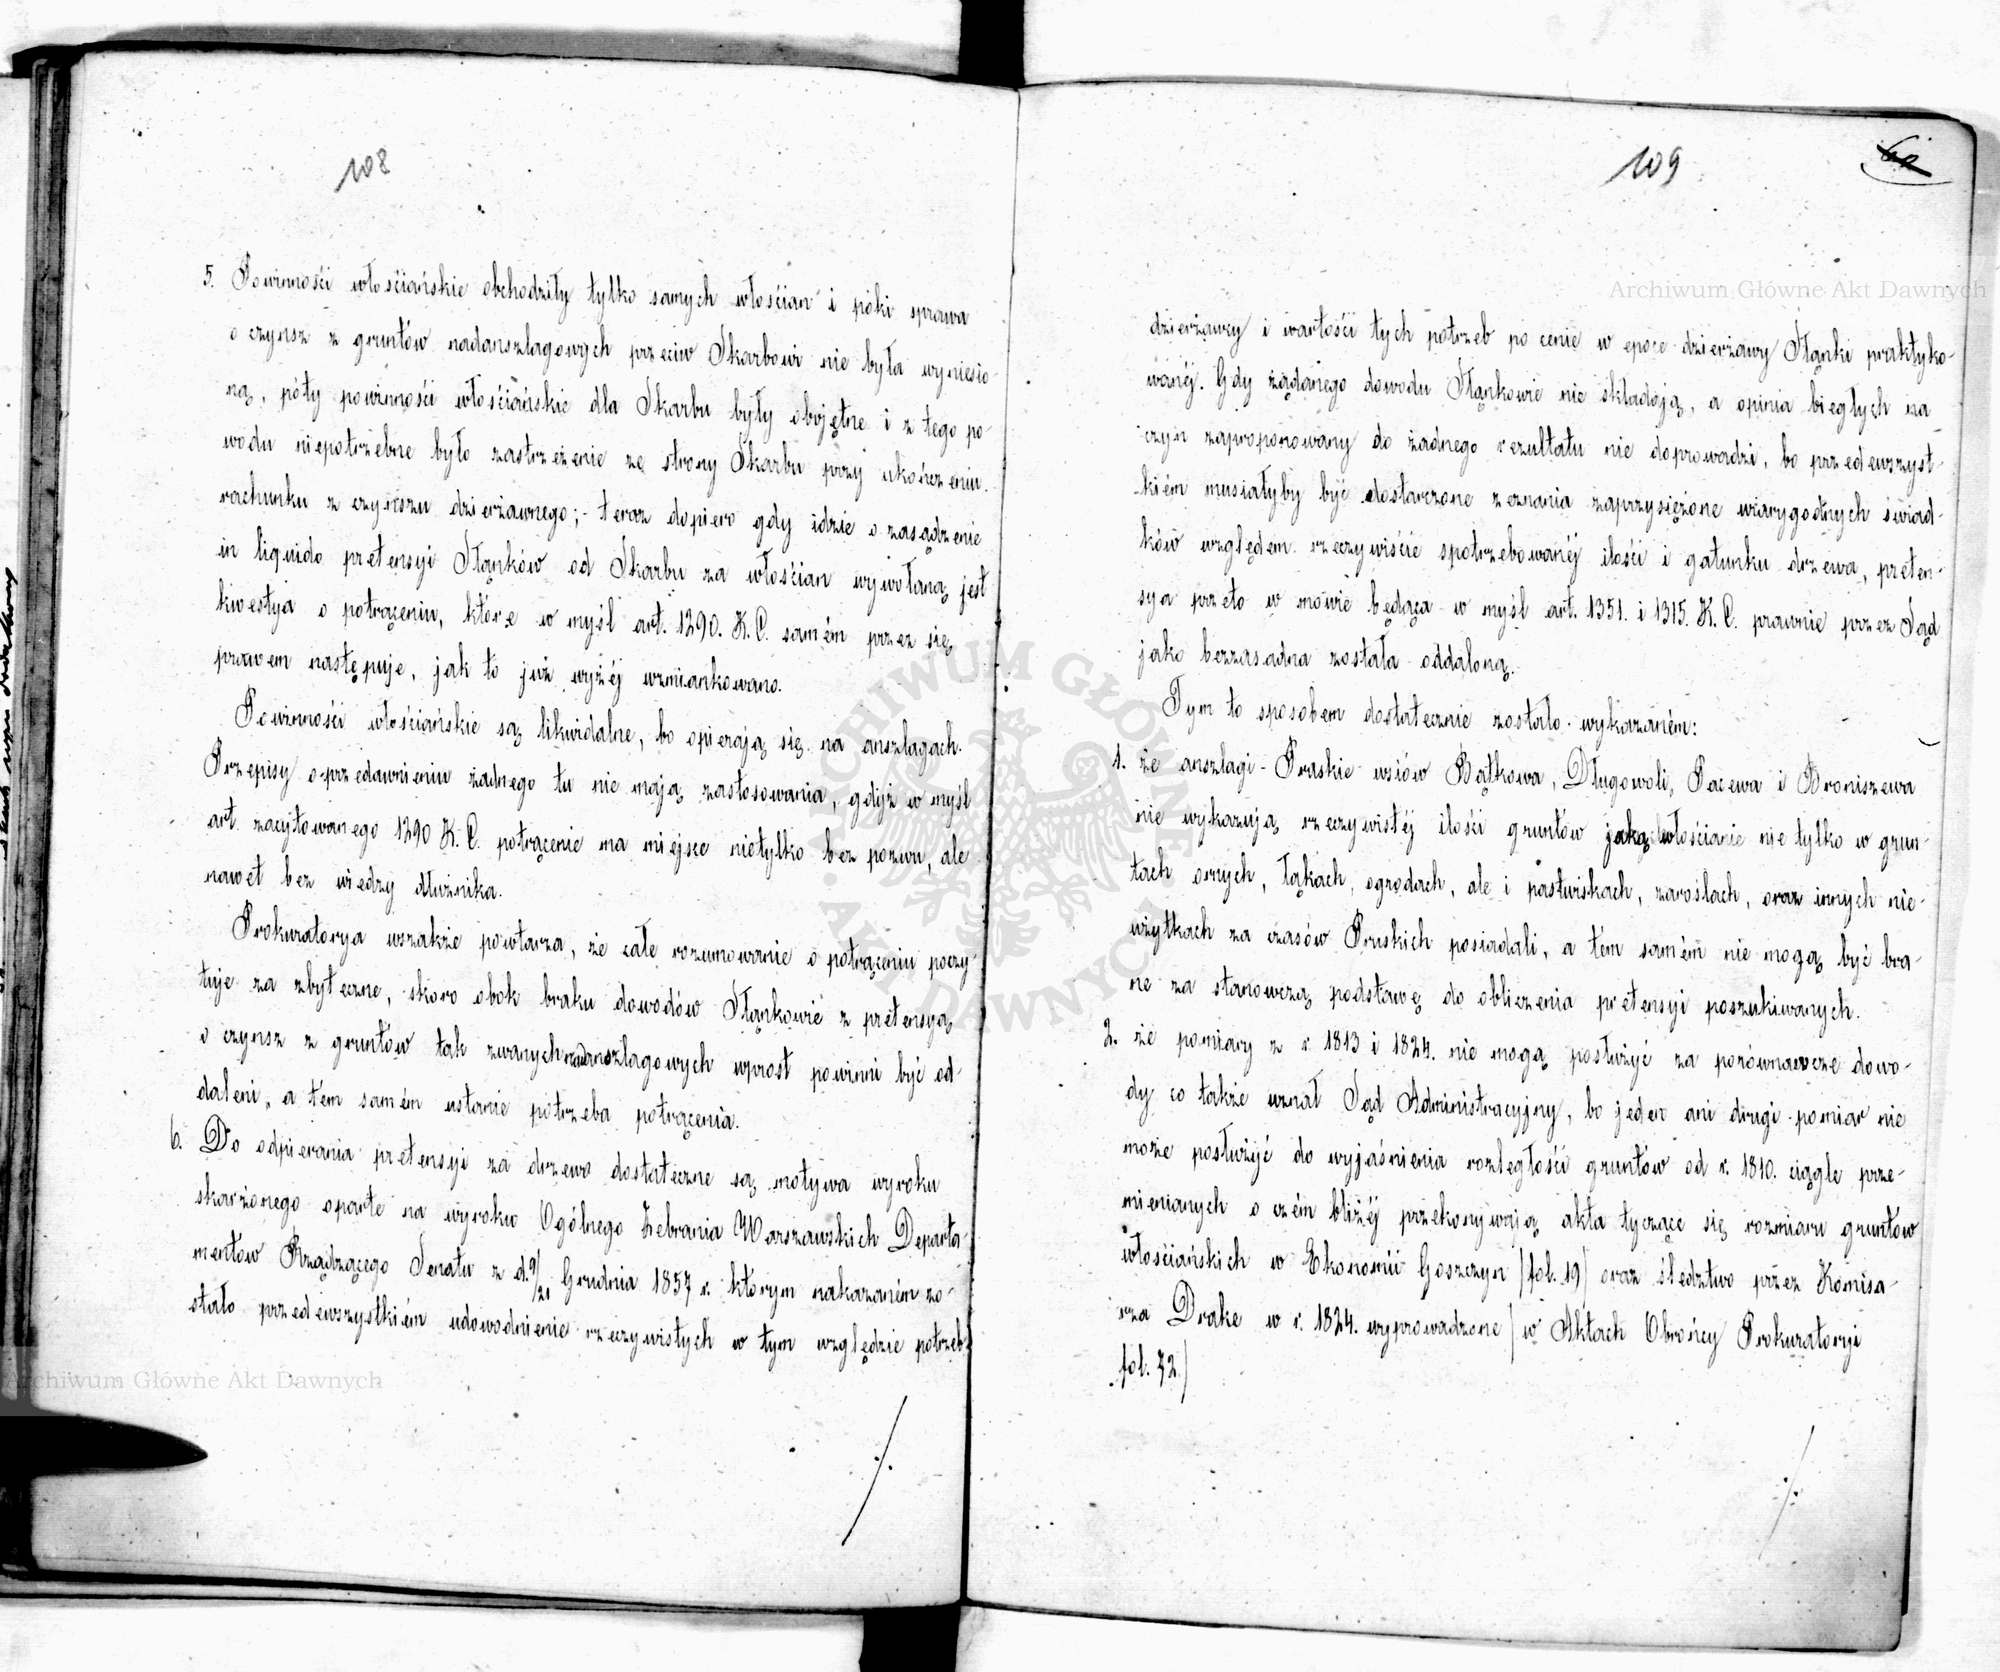 108
5. Powinności włościańskie obchodziły tylko samych włościan i póki sprawa
o czynsz z gruntów nadanszlagowych przeciw Skarbowi nie była wyniesio-
ną, póty powinności włościańskie dla Skarbu były obojętne i z tego po-
wodu niepotrzebne było zastrzeżenie ze strony Skarbu przy ukończeniu
rachunku z czynszu dzierżawnego; - teraz dopiero gdy idzie o zasądzenie
in liquido pretensyi Stąnków od Skarbu za włościan wywołaną jest
kwestya o potrąceniu, które w myśl art. 1290. K. C. samém przez się
prawem następuje, jak to już wyżéj wzmiankowano.
Powinności włościańskie są likwidalne, bo opierają się na anszlagach.
Przepisy o przedawnieniu żadnego tu nie mają zastosowania, gdyż w myśl
art. zacytowanego 1290 K. C. potrącenie ma miejsce nietylko bez pozwu, ale
nawet bez wiedzy dłużnika.
Prokuratorya wszakże powtarza, że całe rozumowanie o potrąceniu poczy-
tuje za zbyteczne, skoro obok braku dowodów Stąnkowie z pretensyą
o czynsz z gruntów tak zwanych nadanszlagowych wprost powinni być od-
daleni, a tém samém ustanie potrzeba potrącenia.
6. Do odpierania pretensyi za drzewo dostateczne są motywa wyroku
skarżonego oparte na wyroku Ogólnego Zebrania Warszawskich Departa-
mentów Rządzącego Senatu z d. 9/21 Grudnia 1857 r. którym nakazaném zo-
stało przedewszystkiém udowodnienie rzeczywistych w tym względzie potrzeb
109
dzierżawcy i wartości tych potrzeb po cenie w epoce dzierżawy Stąnki praktyko-
wanéj. Gdy żądanego dowodu Stąnkowie nie składają, a opinia biegłych na
czyn zaproponowany do żadnego rezultatu nie doprowadzi, bo przedewszyst-
kiém musiałyby być dostarczone zeznania zaprzysiężone wiarygodnych świad-
ków względem rzeczywiście spotrzebowanéj ilości i gatunku drzewa, preten-
sya przeto w mowie będąca w myśl art. 1351. i 1315. K. C. prawnie przez Sąd
jako bezzasadna została oddaloną.
Tym to sposobem dostatecznie zostało wykazaném:
1. że anszlagi Pruskie wsiów Bątkowa, Długowoli, Pacewa i Broniszewa
nie wykazują rzeczywistéj ilości gruntów jaką włościanie nie tylko w grun-
tach ornych, łąkach, ogrodach, ale i pastwiskach, zaroślach, oraz innych nie-
użytkach za czasów Pruskich posiadali, a tem samém nie mogą być bra-
ne za stanowczą podstawę do obliczenia pretensyi poszukiwanych.
2. że pomiary z r. 1813 i 1824. nie mogą posłużyć za porównawcze dowo-
dy co także uznał Sąd Administracyjny, bo jeden ani drugi pomiar nie
może posłużyć do wyjaśnienia rozległości gruntów od r. 1810. ciągle prze-
mienianych o czém bliżéj przekonywają akta tyczące się rozmiaru gruntów
włościańskich w Ekonomii Goszczyn /fol. 19/ oraz śledztwo przez Komisa-
rza Drake w r. 1824. wyprowadzone / w Aktach Obrońcy Prokuratoryi
fol. 72./
Archiwum Główne Akt Dawnych
Archiwum Główne Akt Dawnych
ARCHIWUM GŁÓWNE AKT DAWNYCH